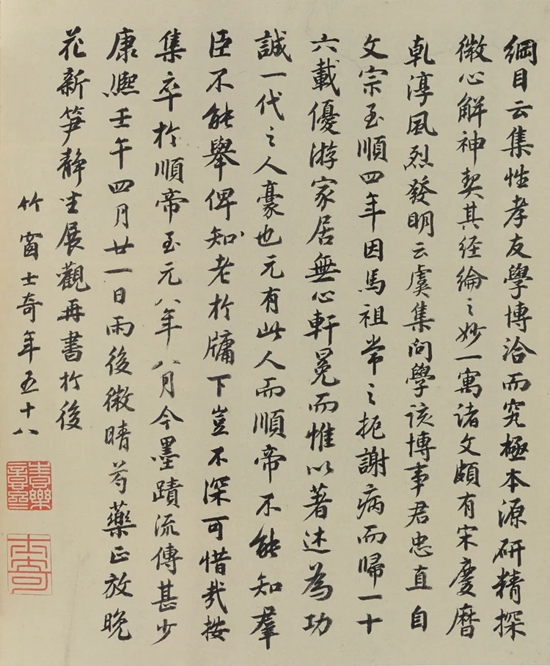 綱目云集性孝友學博洽而究極本源研精探
微心解神契其經綸之妙一寓諸文頗有宋慶曆
乹淳風烈發明云虞集問學該博事君忠直自
文宗至順四年因馬祖常之扼謝病而歸一十
六載優游家居無心軒冕而惟以著述為功
誠一代之人豪也元有此人而順帝不能知羣
臣不能舉俾知老於牖下豈不深可惜哉按
集卒於順帝至元八年八月今墨蹟流傳甚少
康熈壬午四月廿一日雨後微晴芍藥正放晚
花新笋靜坐展觀再書於後
竹窗士奇年五十八
士奇